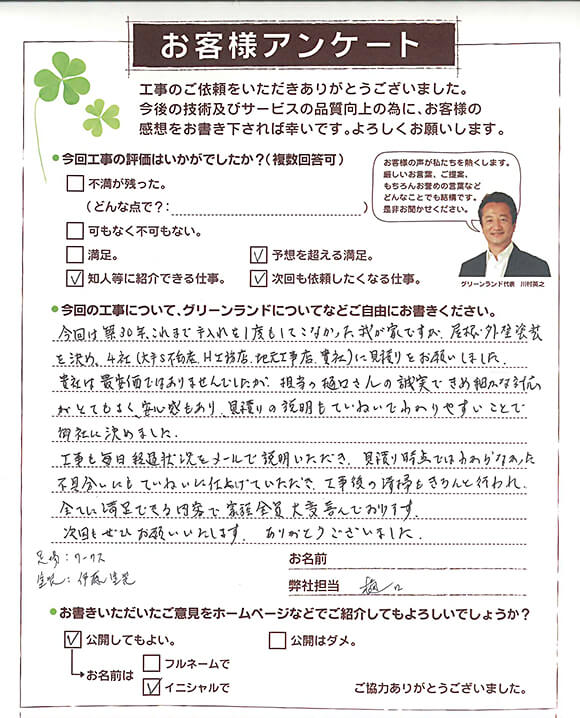 お客様アンケート
工事のご依頼をいただきありがとうございました。
今後の技術及びサービスの品質向上の為に、お客様の
感想をお書き下されば幸いです。よろしくお願いします。
今回工事の評価はいかがでしたか？（複数回答可）
お客様の声が私たちを熱くします。
厳しいお言葉、ご提案、
もちろんお誉めの言葉など
どんなことでも結構です。
是非お聞かせください。
不満が残った。
（どんな点で？：）
可もなく不可もない。
満足。
予想を超える満足。
知人等に紹介できる仕事。
次回も依頼したくなる仕事。
グリーンランド代表 川村英之
今回の工事について、グリーンランドについてなどご自由にお書きください。
今回は築30年、これまで手入れを1度もしてこなかった我が家ですが、屋根・外壁塗装
を決め、4社（大手S不動産、H工務店、地元工事店、貴社）に見積りをお願いしました。
貴社は最安価ではありませんでしたが、担当の樋口さんの誠実できめ細かな対応
がとてもよく、安心感もあり、見積りの説明もていねいでわかりやすいことで
御社に決めました。
工事も毎日経過状況をメールで説明いただき、見積り時点ではわからなかった
不具合いにもていねいに仕上げていただき、工事後の清掃もきちんと行われ、
全てに満足できる内容で家族全員大変喜んでおります。
次回もぜひお願いいたします。ありがとうございました。
足場：ワークス
塗装：伊藤塗装
お名前
弊社担当 樋口
お書きいただいたご意見をホームページなどでご紹介してもよろしいでしょうか？
公開してもよい。
公開はダメ。
お名前は
フルネームで
イニシャルで
ご協力ありがとうございました。